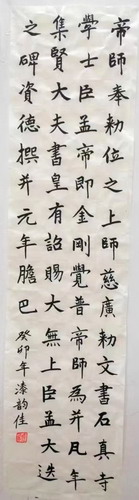 帝師奉勅位之上師慈廣勅文書石真寺
學士臣孟帝即金剛覺普帝師為并凡年
集賢大夫書皇有詔賜大無上臣孟大迭
之碑資德撰并元年膽巴
癸卯年湊韵佳